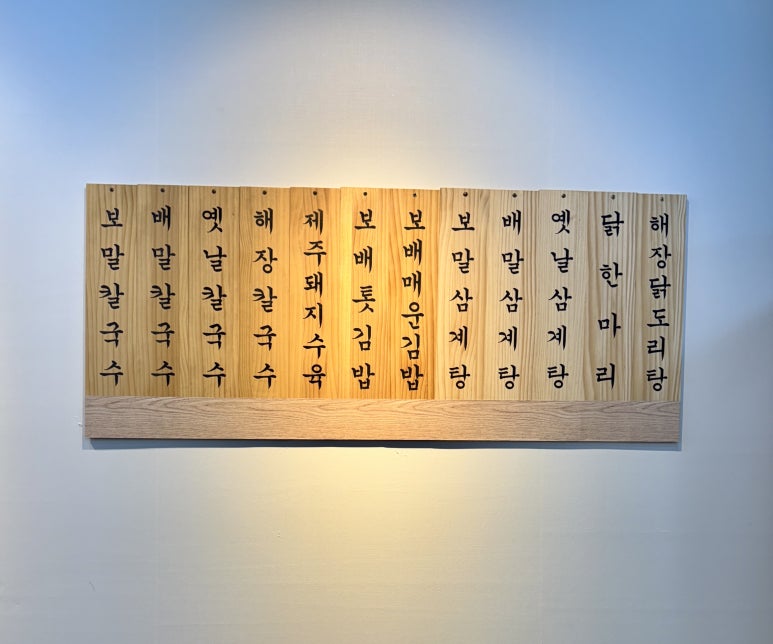 보말칼국수
배말칼국수
옛날칼국수
해장칼국수
제주돼지수육
보배톳김밥
보배매운김밥
보말삼계탕
배말삼계탕
옛날삼계탕
닭한마리
해장닭도리탕